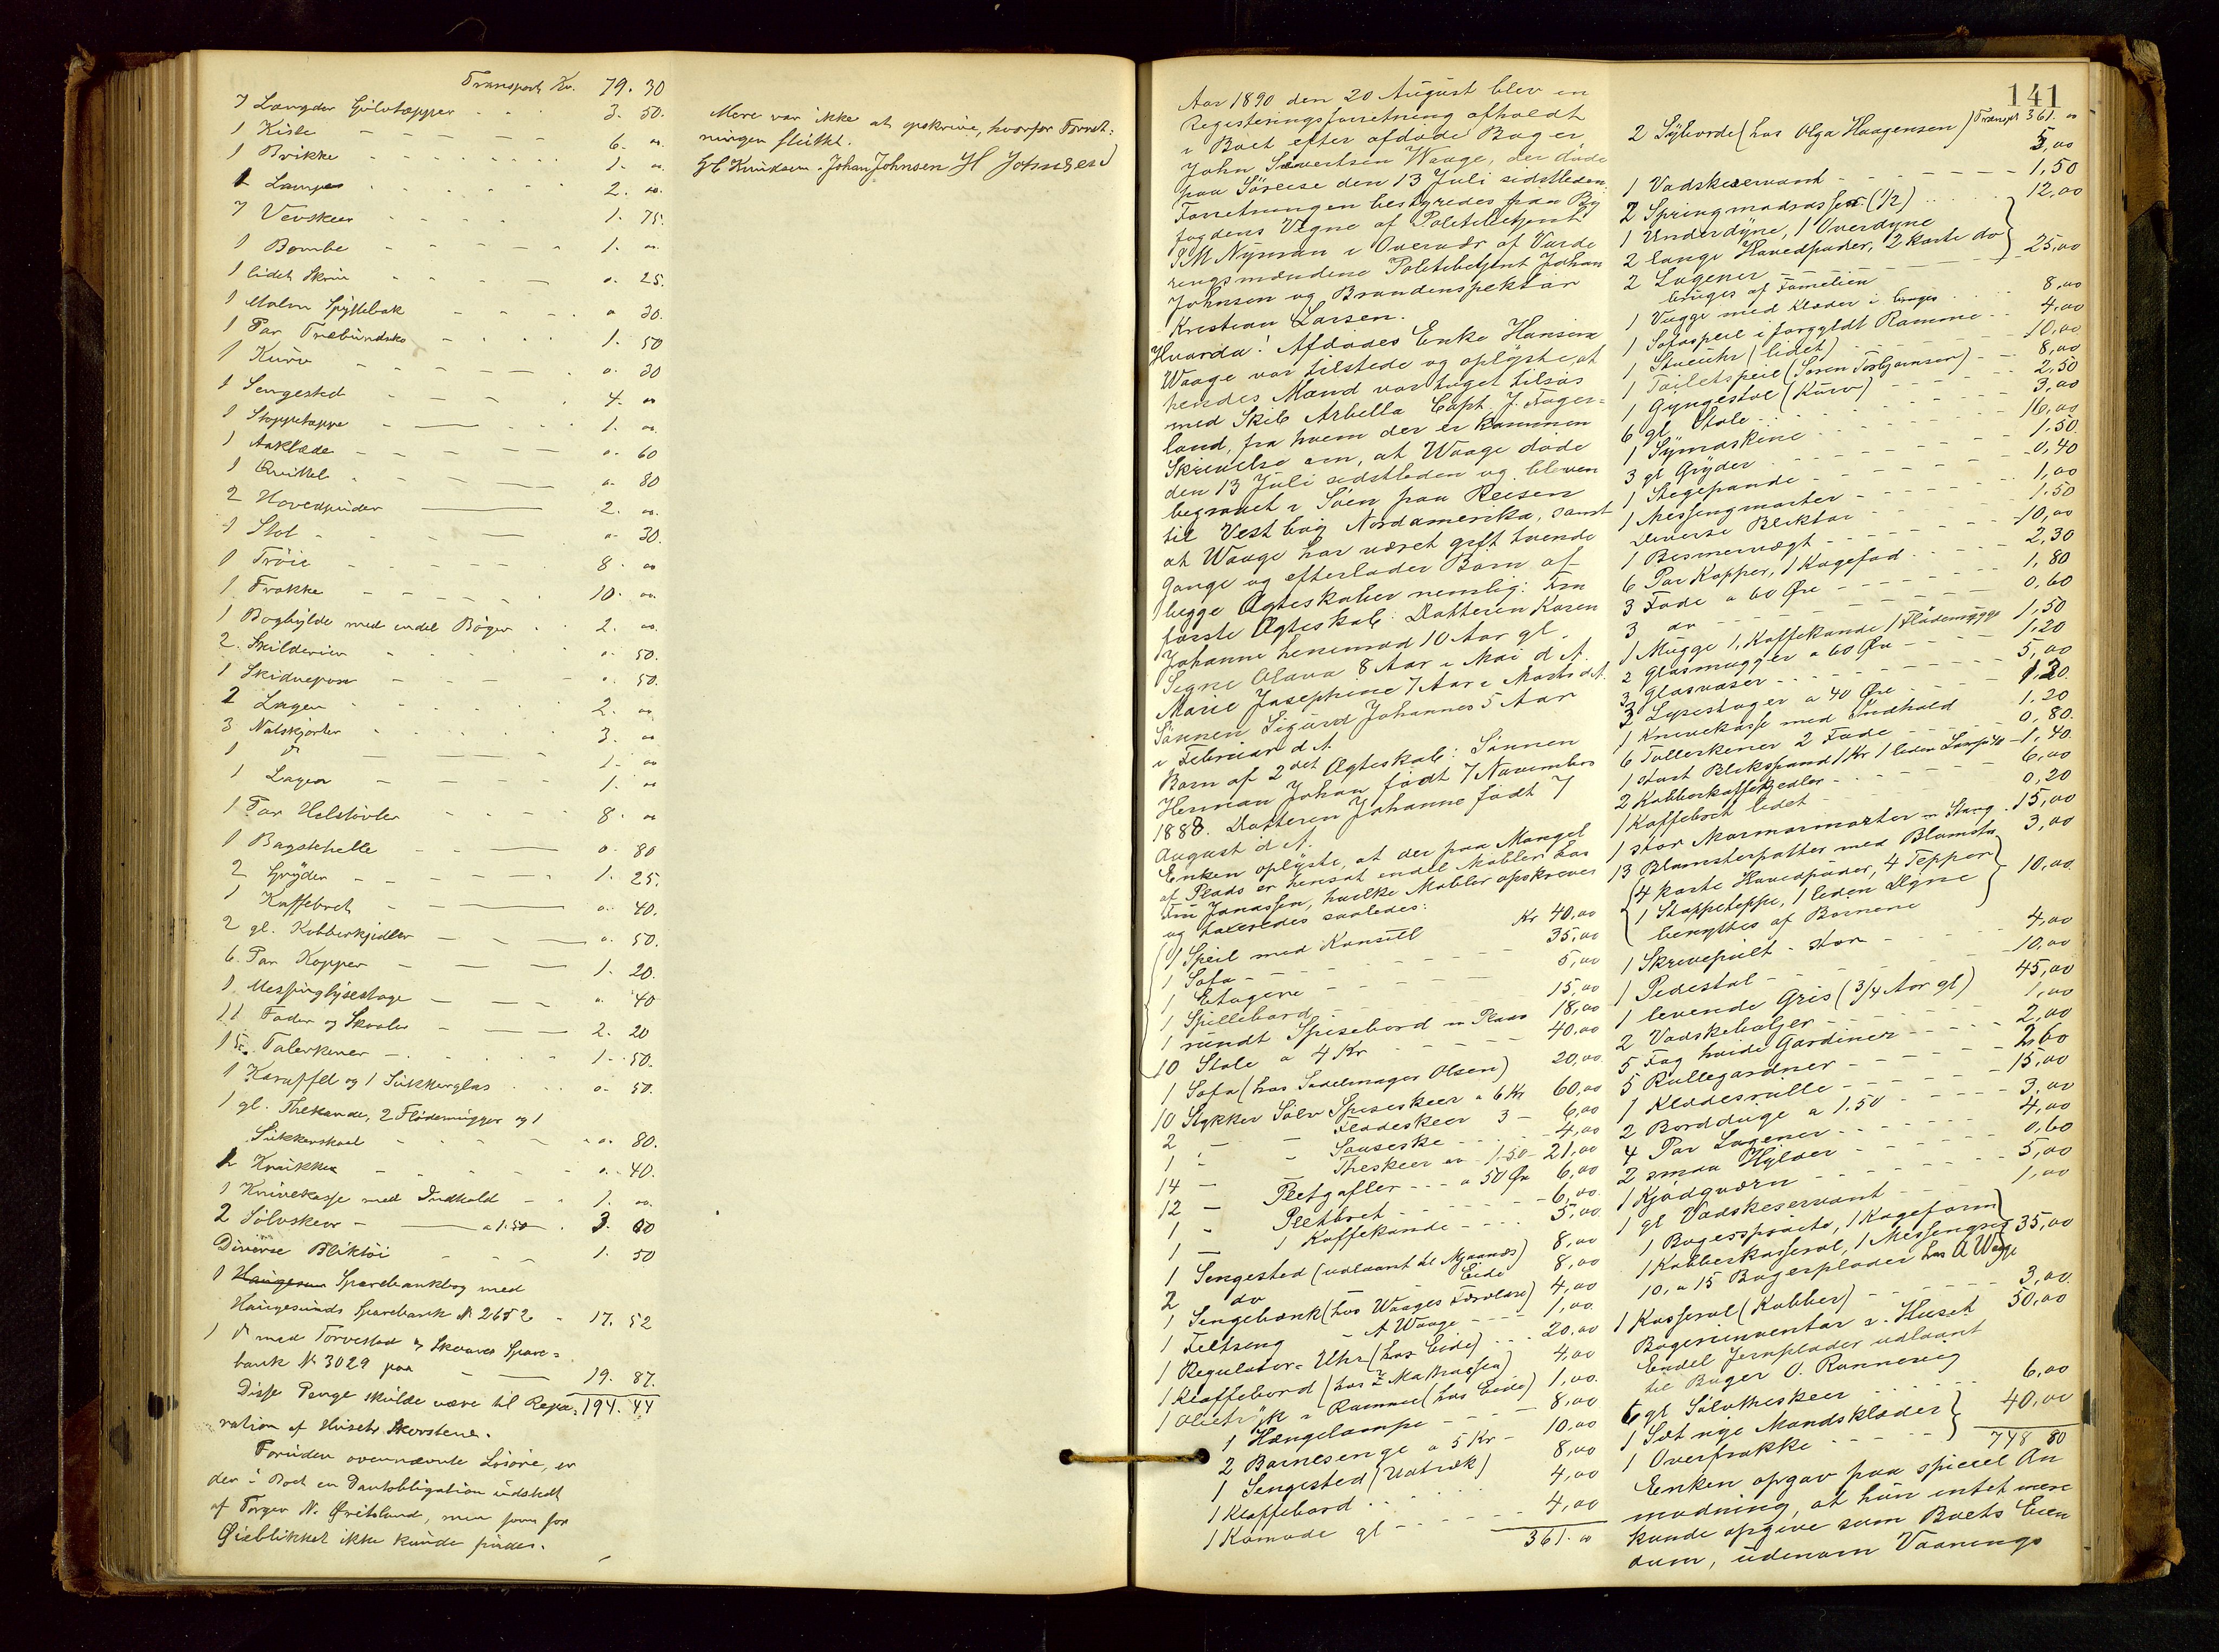 Transport Kr. 79. 30
7 Længder Gulvtæpper 3. 50.
1 Kiste 6. 00
1 Brikke 1. 00.
1 Lampe 2. 00.
7 Vevskeer 1. 75.
1 Bombe 1. 00.
1 lidet Skrin 0. 25.
1 Malm Spyttebak 0 30.
1 Par Træbundsko 1. 50
1 Kurv 0. 30
1 Sengested 4. 00
1 Stoppetæppe 1. 00.
1 Aaklæde 0. 60
1 Qvittel 0. 80
2 Hovedpuder 2. 00.
1 Stol 0. 30.
1 Trøie 8. 00
1 Frakke 10. 00.
1 Boghylde med endel Bøger 2. 00.
2. Skilderier 0. 50.
1 Skindpose 0. 50.
2 Lagen 2. 00
3 Natskjorter 3. 00
1 do 1. 00
1 Lagen 1. 00
1 Par Halstøvler 8. 00
1 Bagstehelle 0. 80
2 Gryder 1. 25.
1 Kaffebret 0. 40.
2 gl. Kobberkjedler 0. 50.
6. Par Kopper 1. 20.
1. Messinglysestage 0. 40
11 Fader og Skaaler 2. 20
15. Talerkener 1. 50.
1 Karaffel og 1 Sukkerglas 0. 50.
1 gl. Thekande, 2 Flødemugger og 1
Sukkerskaal 0. 80.
2 Krukker 0. 40.
1 Knivekasse med Indhold 1. 00.
2 Sølvskeer a 1.50 3. 00
Diverse Bliktøi 1. 50
1 Haugesun Sparebankbog med
Haugesunds Sparebank N 2652 17. 52
1 do med Torvestad og Skaare Spare=
bank N. 3029 paa 19. 87.
Disse Penge skulde være til Repa= 194. 44
ration af Husets Skorstene.
Foruden ovennævnte Løsøre, er
der i Boet en Pantobligation udstedt
af Torger N. Qvitsland, men som for
Øieblikket ikke kunde findes.
Mere var ikke at opskrive, hvorfor Forret:
ningen sluttet.
Knudsen. Johan Johnsen H Johnsen
141
Aar 1890 den 20 August blev en
Registeringsforretning afholdt
i Boet efter afdøde Bager
John Sivertsen Waage, der døde
paa Søreise den 13 Juli sidstleden.
Forretningen bestyredes paa By
fogdens Vegne af Politibetjent
I M Nyman i Overvær af Vurde
ringsmændene Politibetjent Johan
Johnsen og Brandinspektør
Kristian Larsen.
Hvorda! Afdødes Enke Hansine
Waage var tilstede og oplyste, at
hendes Mand var taget tilsøs
med Skib Arbella Capt. J. Fager=
land, fra hvem der er kommen
Skrivelse om, at Waage døde
den 13 Juli sidstleden og bleven
begravet i Søen paa Reisen
til Vest bay Nordamerika, samt
at Waage har været gift tvende
Gange og efterlader Børn af
begge Ægteskaber nemlig: Fra
første Ægteskab: Datteren Karen
Johanne henimod 10 Aar gl.
Signe Olava 8 Aar i Mai d A.
Marie Josephine 7 Aar i Marts d A.
Sønnen Sigurd Johannes 5 Aar
i Februar d A.
Børn af 2det Ægteskab: Sønnen
Herman Johan født 7 November
1888. Datteren Johanne født 7
August d A.
Enken oplyste, at der paa Mangel
af Plads er hensat endel Møbler hos
Fru Jonassen, hvilke Møbler opskreves
og taxeredes saaledes:
1 Speil med Konsul Kr 40,00
1 Sofa 35,00
1 Etagere 5,00
1 Spillebord 15,00
1 rundt Spisebord m Plade 18,00
10 Stole a 4 Kr 40,00
1 Sofa (hos Sadelmager Olsen) 20,00
10 Stykker Sølv Spiseskeer a 6 Kr 60,00
2 - - Flødeskeer 3 - 6,00
1 - - Sauseske 4,00
14 - Theskeer a 1.50 - 21,00
12 - Pletgafler a 50 Øre 6,00
1 - Pletbret 6,00.
1 - 1 Kaffekande 5,00
1 Sengested (udlaant til Mjaanæs) 8,00
2 do Eide 8,00
1 Sengebænk (hos Waages Forældre) 4,00
1 Feltseng - A Waage 1,00.
1 Regulator-Uhr (hos Eide) 20,00
1 Klaffebord (hos Mathiassen) 4,00
1 Olietryk i Ramme (hos Eide) 1,00.
1 Hængelampe 8,00
2 Barnesenge a 5 Kr 10,00
1 Sengested (Udtræk) 8,00
1 Klaffebord 4,00
1 Komode gl 4,00
361. 00
Transpt 361. 00
2 Syborde (hos Olga Haagensen) 5,00
1 Vadskeservant 1,50
2 Springmadrasser (1/2) 12,00
1 Underdyne, 1 Overdyne
2 lange Hovedpuder, 2 korte do
2 Lagener 25,00
bruges af Familien
1 Vugge med Klæder i bruges 8,00
1 Sofaspeil i forgyldt Ramme 4,00
1 Stueuhr (lidet) 10,00
1 Toiletspeil (Søren Torbjørnsen) 8,00
1 Gyngestol (Kurv) 2,50
6 gl. Stole 3,00
1 Symaskine 16,00
3 gl Gryder 1,50
1 Stegepande 0,40
1 Messingmorter 1,00
Diverse Bliktøi 1,50
1 Bismervægt 10,00
6 Par Kopper, 1 Kagefad 2,30
3 Fade a 60 Øre 1,80
3 do 0,60
1 Mugge 1, Kaffekande 1 Flødemugge 1,50
2 Glasmugger a 60 Øre 1,20
3 Glasvaser 5,00
3 Lysestager a 40 Øre 1,20.
1 Knivekasse med Indhold 1,20
6 Tallerkener 2 Fade 0,80.
1 stort Blikspand 1 Kr 1 liden Lampe 40 - 1,40.
2 Kobberkaffekjedler 6,00
1 Kaffebret lidet 0,20
1 stor Marmormorter m Stang 15,00
13 Blomsterpotter med Blomster 3,00
4 korte Hovedpuder, 4 Tepper
1 Stoppeteppe, 1 liden Dyne 10,00
benyttes af Børnene
1 Skrivepult - stor 4,00
1 Pedestal 10,00
1 levende Gris (3/4 Aar gl) 45,00
2 Vadskebaljer 1,00
5 Fag hvide Gardiner 2,00
5 Rullegardner 2,60
1 Klædesrulle 15,00
2 Bordduge a 1.50 3,00
4 Par Lagener 4,00
2 smaa Hylder 0,60
1 Kjødqværn 5,00
1 gl Vadskeservant 1,00
1 Bagessprøite, 1 Kageform
1 Kobberkasserol, 1 Messingsig 35,00
10, a 15 Bagerplader hos A Waage
1 Kasserol (Kobber) 3,00.
Bageriinventar i Huset 50,00
Endel Jernplader udlaant
til Bager O. Rønnevig
6 gl Sølvtheskeer 6,00
1 Sæt nye Mandsklæder
1 Overfrakke 40,00
748 80
Enken opgav paa speciel An
modning, at hun intet mere
kunde opgive som Boets Eien
dum, udenom Vaanings